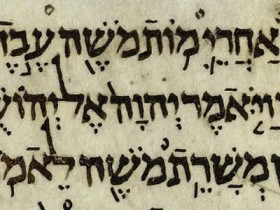 אַחֲרֵי מוֹת מֹשֶׁה עֶבֶד
וַיֹּאמֶר יְהוָה אֶל יְהוֹשֻׁ
מְשָׁרֵת מֹשֶׁה לֵאמֹ